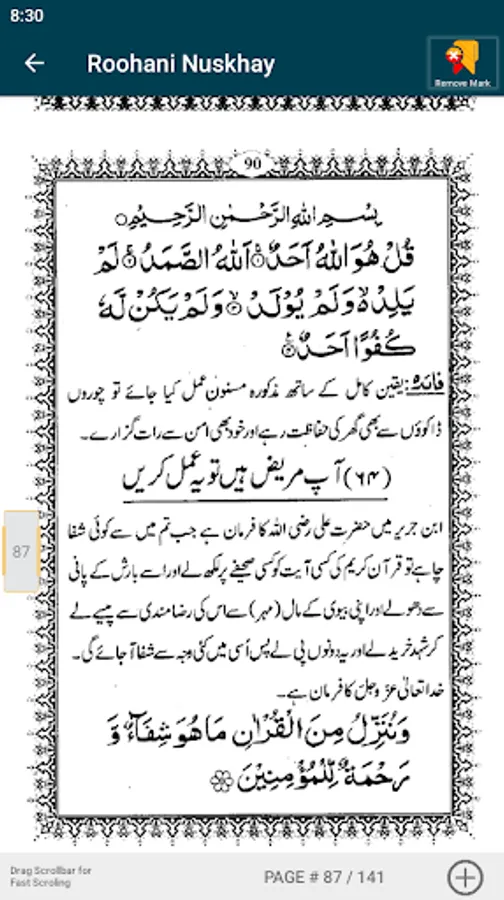 8:30
Roohani Nuskhay
Remove Mark
90
بِسْمِ اللهِ الرَّحْمٰنِ الرَّحِيْمِ
قُلْ هُوَ اللهُ اَحَدٌ اَللهُ الصَّمَدُ لَمْ
يَلِدْ وَلَمْ يُوْلَدْ وَلَمْ يَكُنْ لَّهٗ
كُفُوًا اَحَدٌ
فائدہ: یقین کامل کے ساتھ مذکورہ مسنون عمل کیا جائے تو چوروں
ڈاکوؤں سے بھی گھر کی حفاظت رہے اور خود بھی امن سے رات گزارے۔
(۶۴) آپ مریض ہیں تو یہ عمل کریں
ابن جریر میں حضرت علی رضی اللہ کا فرمان ہے جب تم میں سے کوئی شفا
چاہے تو قرآن کریم کی کسی آیت کو کسی صحیفے پر لکھ لے اور اسے بارش کے پانی
سے دھولے اور اپنی بیوی کے مال (مہر) سے اس کی رضا مندی سے پیسے لے
کر شہد خرید لے اور یہ دونوں پی لے پس اُسی میں کئی وجہ سے شفا آ جائے گی۔
خدا تعالیٰ عزّ وجلّ کا فرمان ہے۔
وَنُنَزِّلُ مِنَ الْقُرْاٰنِ مَا هُوَ شِفَآءٌ وَّ
رَحْمَةٌ لِّلْمُؤْمِنِيْنَ
87
Drag Scrollbar for
Fast Scroling
PAGE # 87 / 141